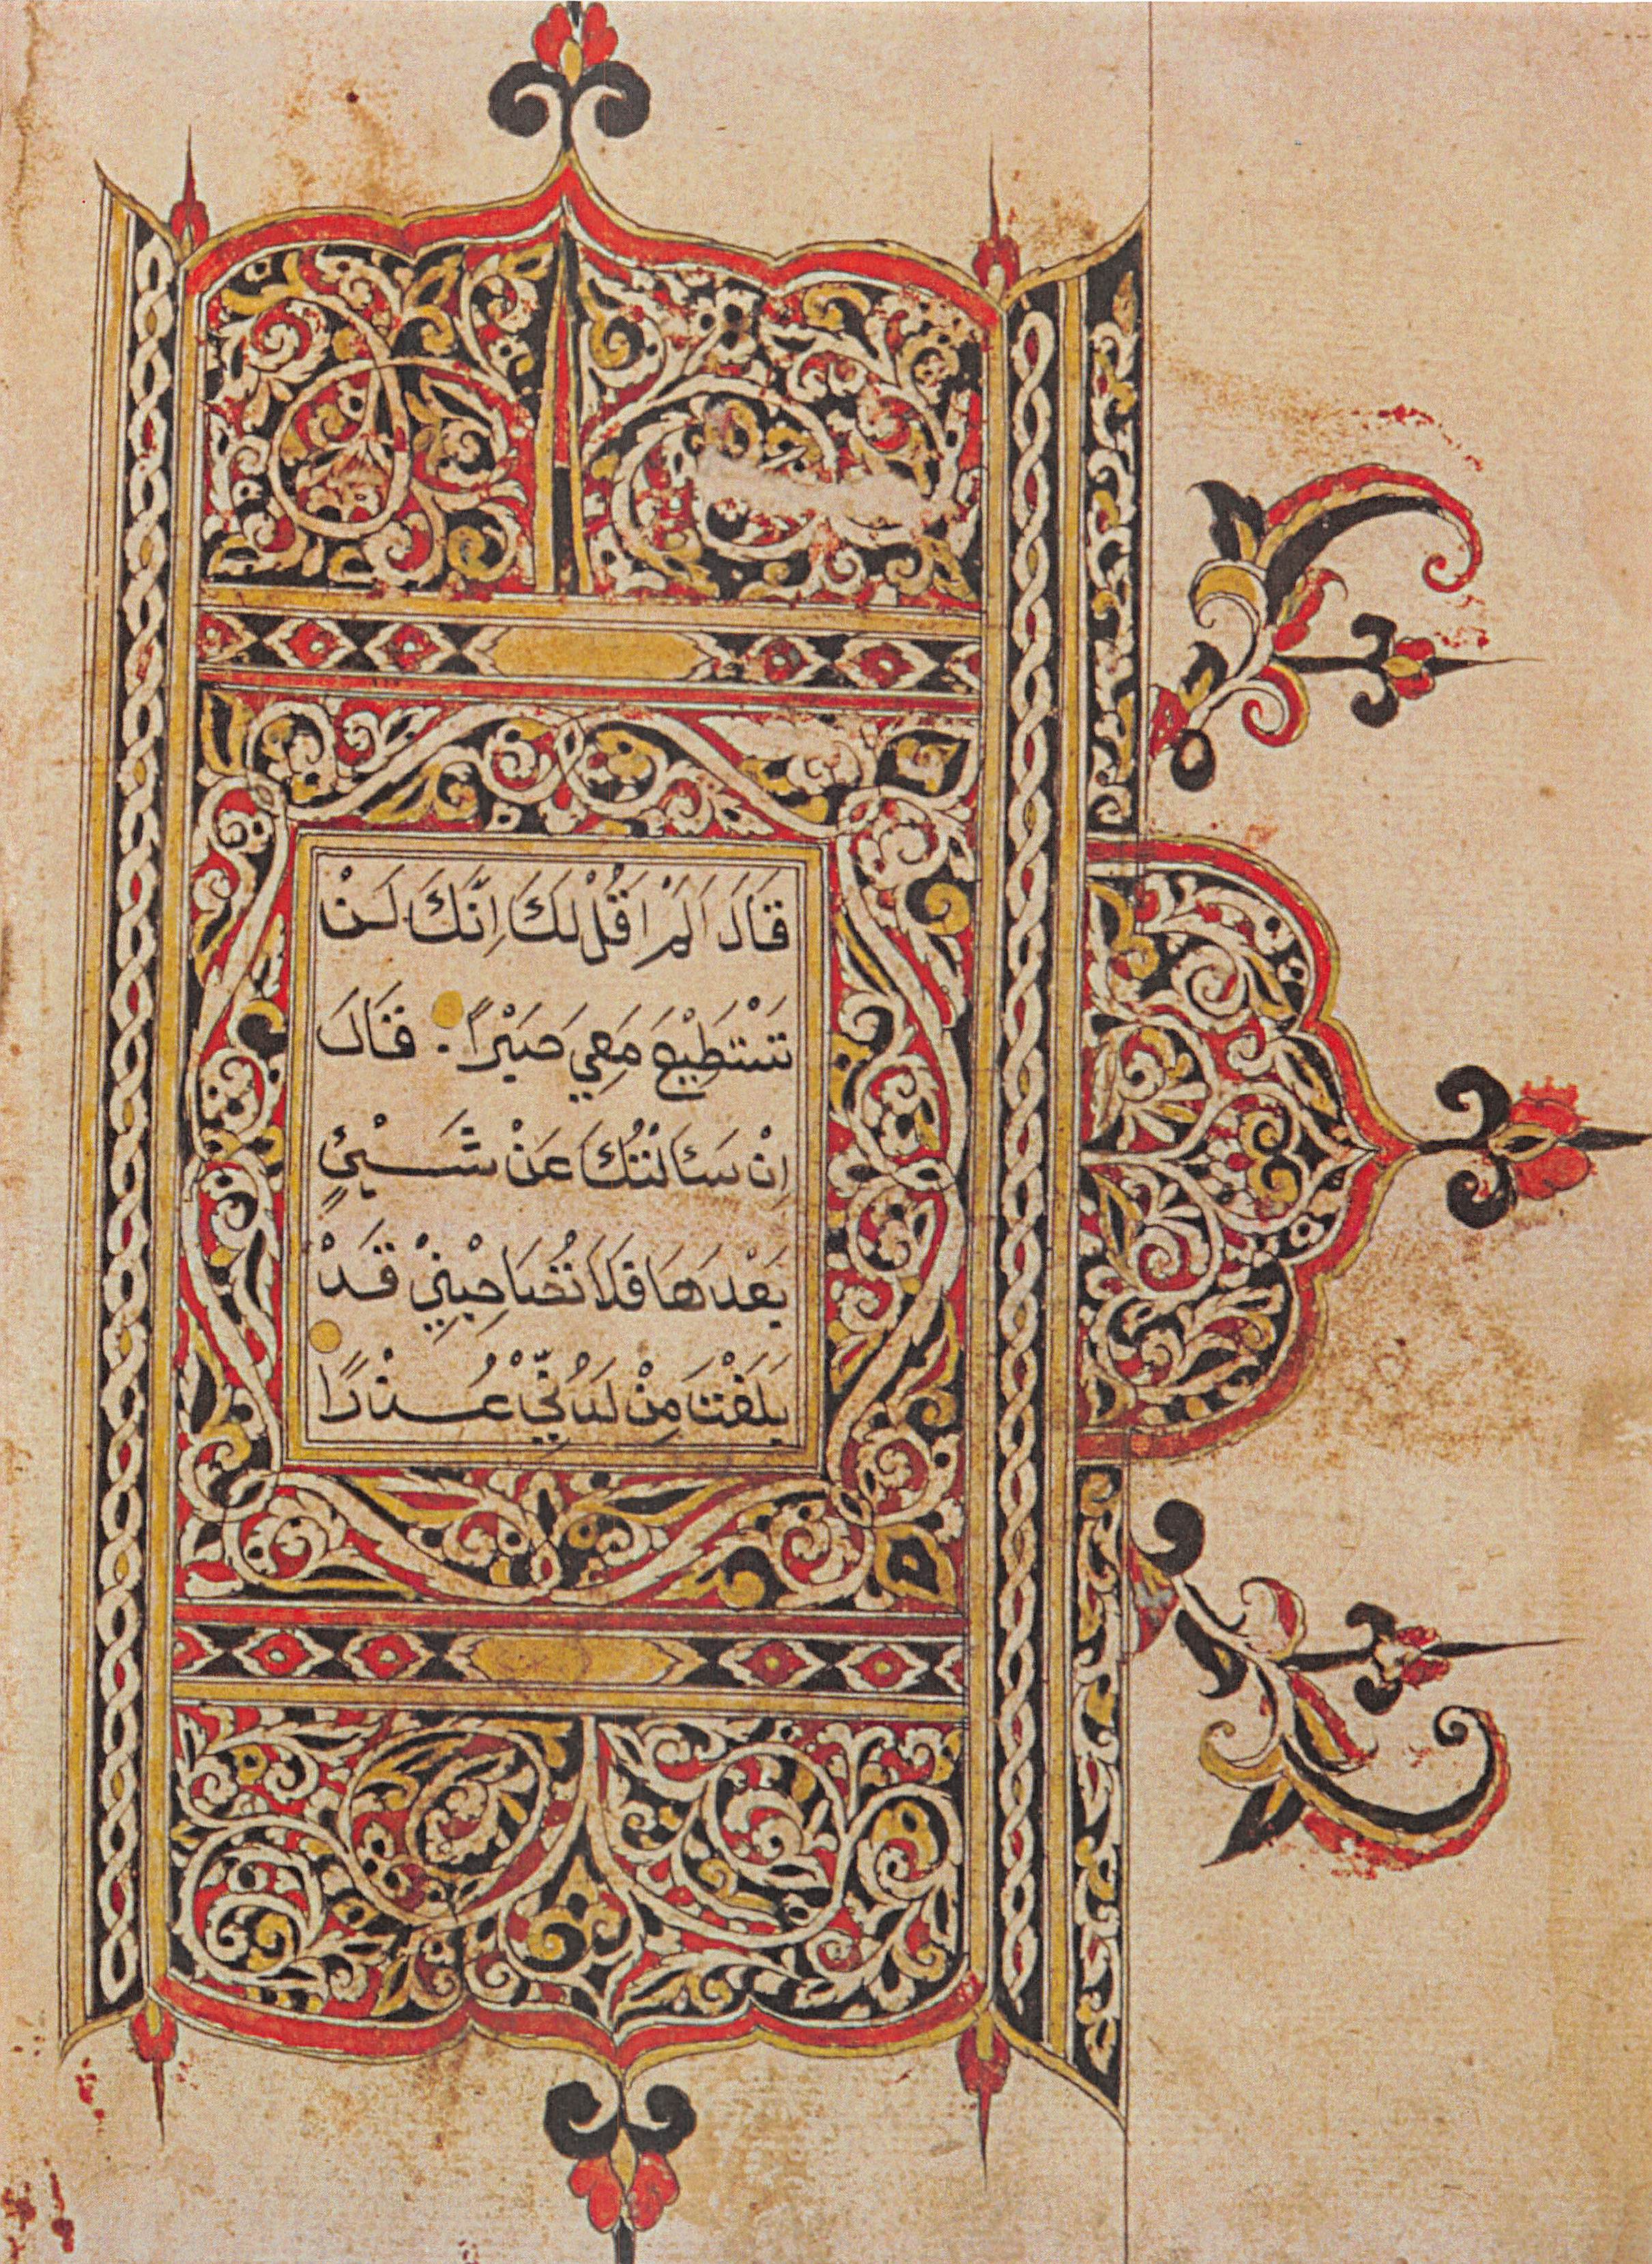 قَالَ اَلَمْ اَقُلْ لَكَ اِنَّكَ لَنْ
تَسْتَطِيْعَ مَعِيَ صَبْرًا . قَالَ
اِنْ سَئَالْتُكَ عَنْ شَيْئٍ
بَعْدَهَا فَلَا تُصَاحِبْنِيْ قَدْ
بَلَغْتَ مِنْ لَدُنِّيْ عُذْرًا